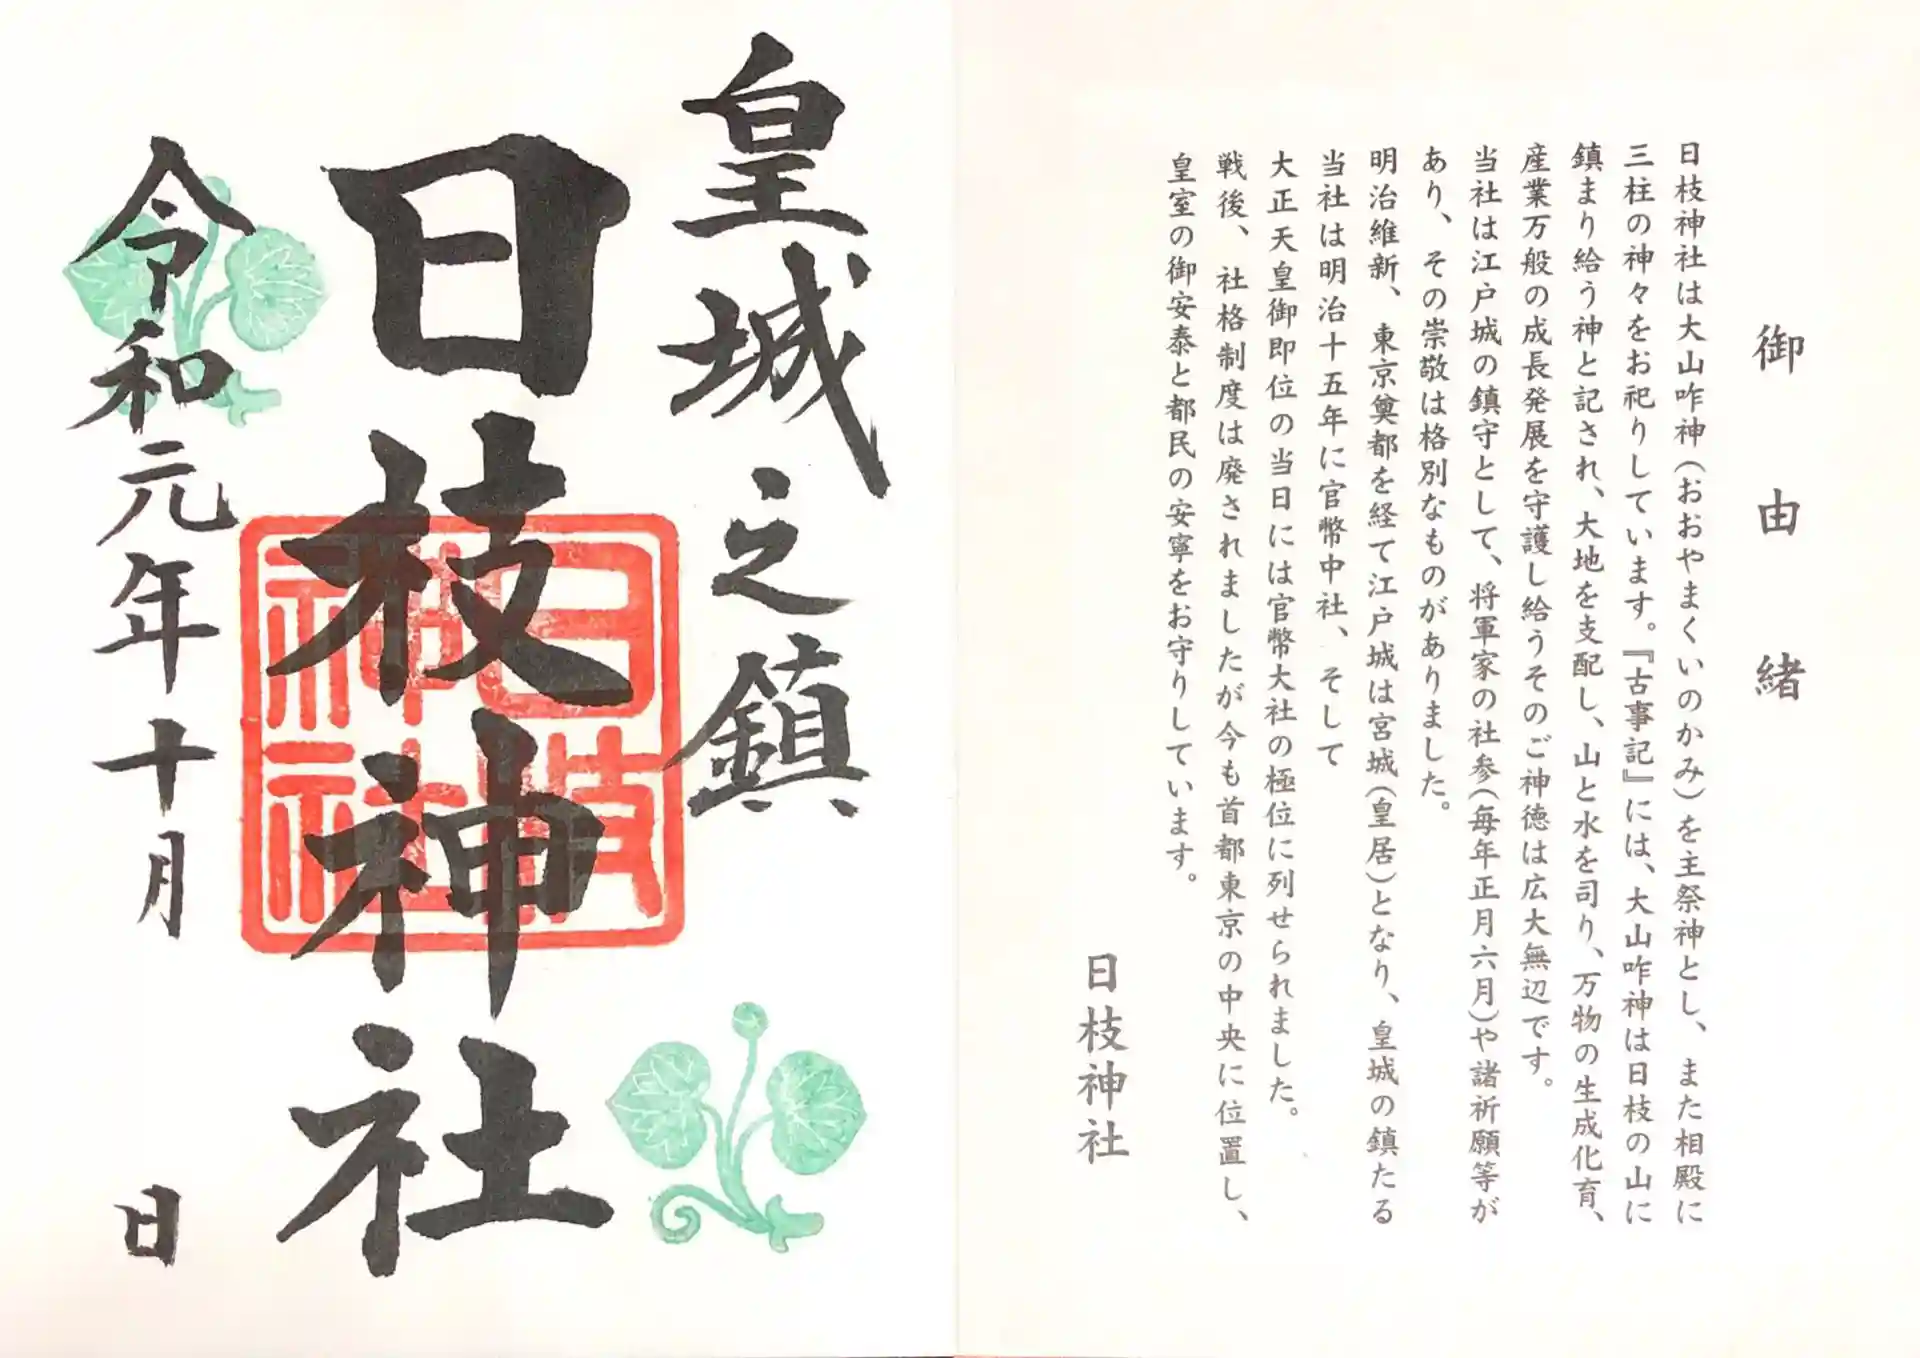 御由緒
日枝神社は大山咋神(おおやまくいのかみ)を主祭神とし、また相殿に
三柱の神々をお祀りしています。『古事記』には、大山咋神は日枝の山に
鎮まり給う神と記され、大地を支配し、山と水を司り、万物の生成化育、
産業万般の成長発展を守護し給うそのご神徳は広大無辺です。
当社は江戸城の鎮守として、将軍家の社参(毎年正月六月)や諸祈願等が
あり、その崇敬は格別なものがありました。
明治維新、東京奠都を経て江戸城は宮城(皇居)となり、皇城の鎮たる
当社は明治十五年に官幣中社、そして
大正天皇御即位の当日には官幣大社の極位に列せられました。
戦後、社格制度は廃されましたが今も首都東京の中央に位置し、
皇室の御安泰と都民の安寧をお守りしています。
日枝神社
皇城之鎮
日枝神社
日枝
神社
令和元年十月 日